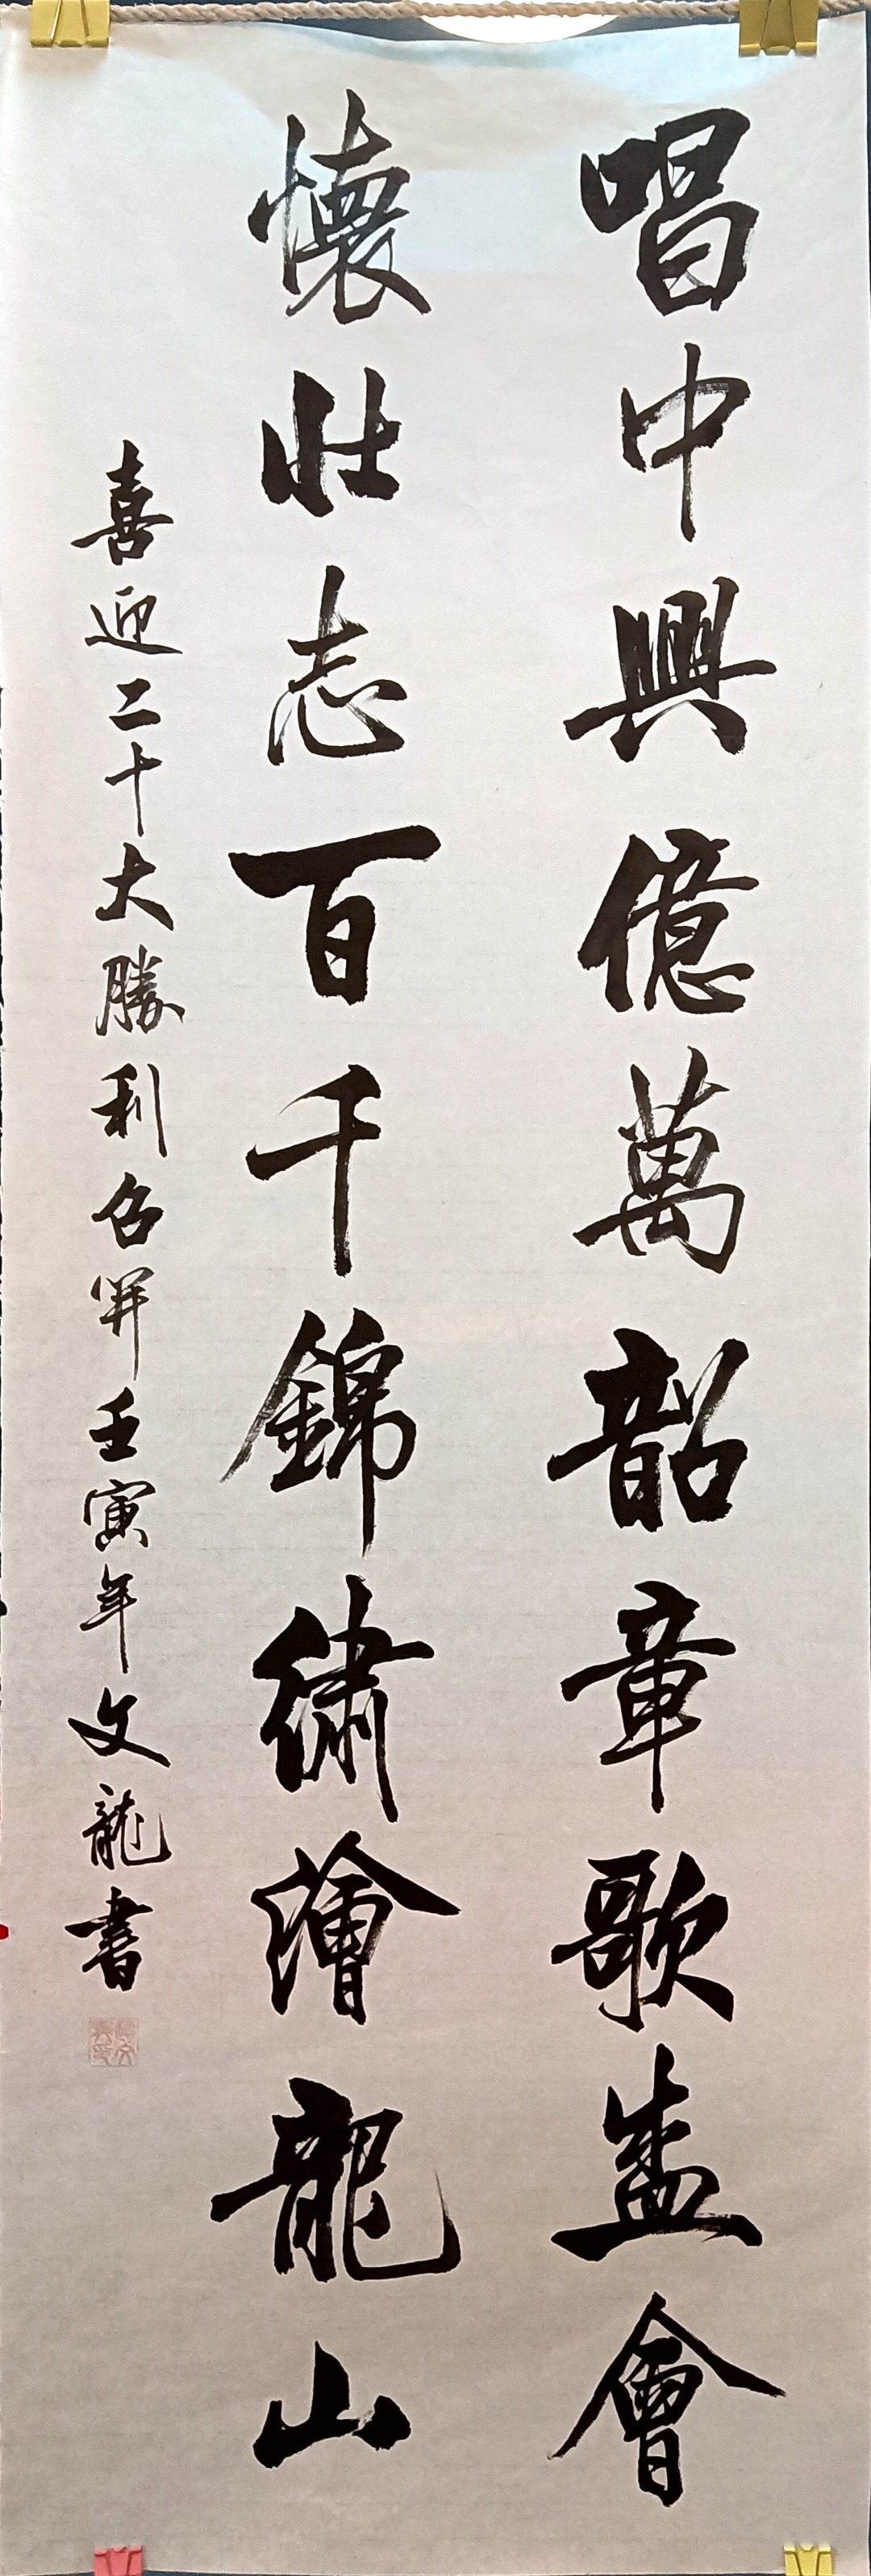 唱中興億萬韶章歌盛會
懷壯志百千錦繡繪龍山
喜迎二十大勝利召開壬寅年文龍書